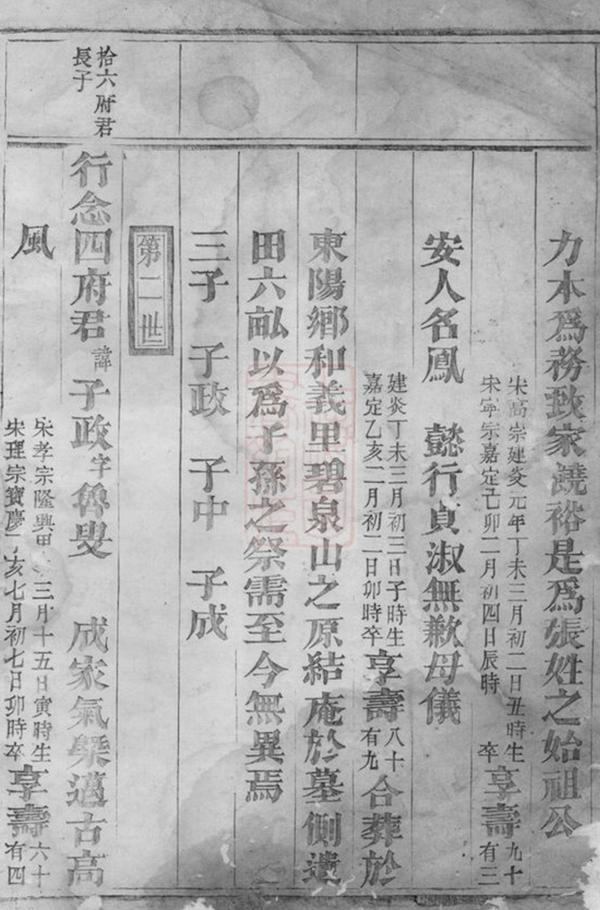 力本爲務致家饒裕是爲張姓之始祖公
宋高宗建炎元年丁未三月初二日丑時生
宋寧宗嘉定己卯二月初四日辰時 卒
享壽九十有三
安人名鳳 懿行貞淑無歉母儀
建炎丁未三月初三日子時生
嘉定乙亥二月初二日卯時卒
享壽八十有九合葬於
東陽鄉和義里碧泉山之原結庵於墓側遺
田六畝以爲子孫之祭需至今無異焉
三子 子政 子中 子成
第二世
拾六府君
長子
行念四府君諱子政字魯叟 成家氣槩邁古高
風
宋孝宗隆興甲 三月十五日寅時生
宋理宗寶慶 亥七月初七日卯時卒
享壽六十有四